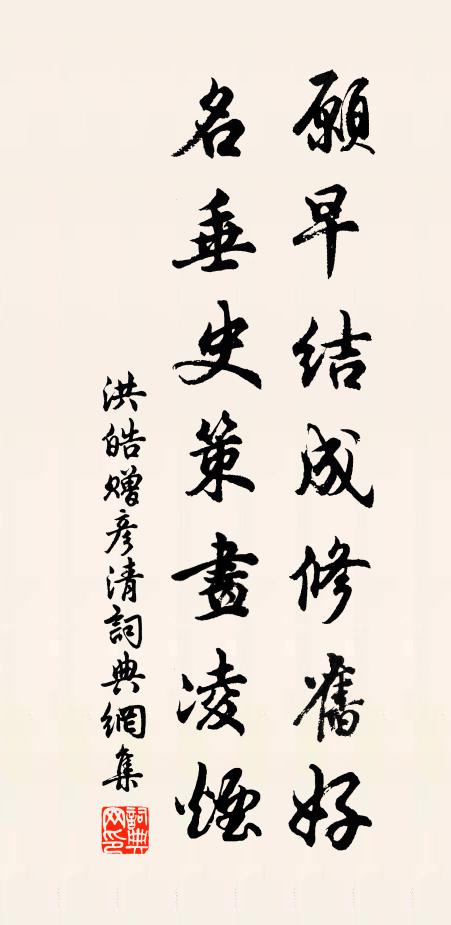 願早結成修舊好
名垂史策畫凌煙
洪皓贈彥清詞典網集
詞典網印